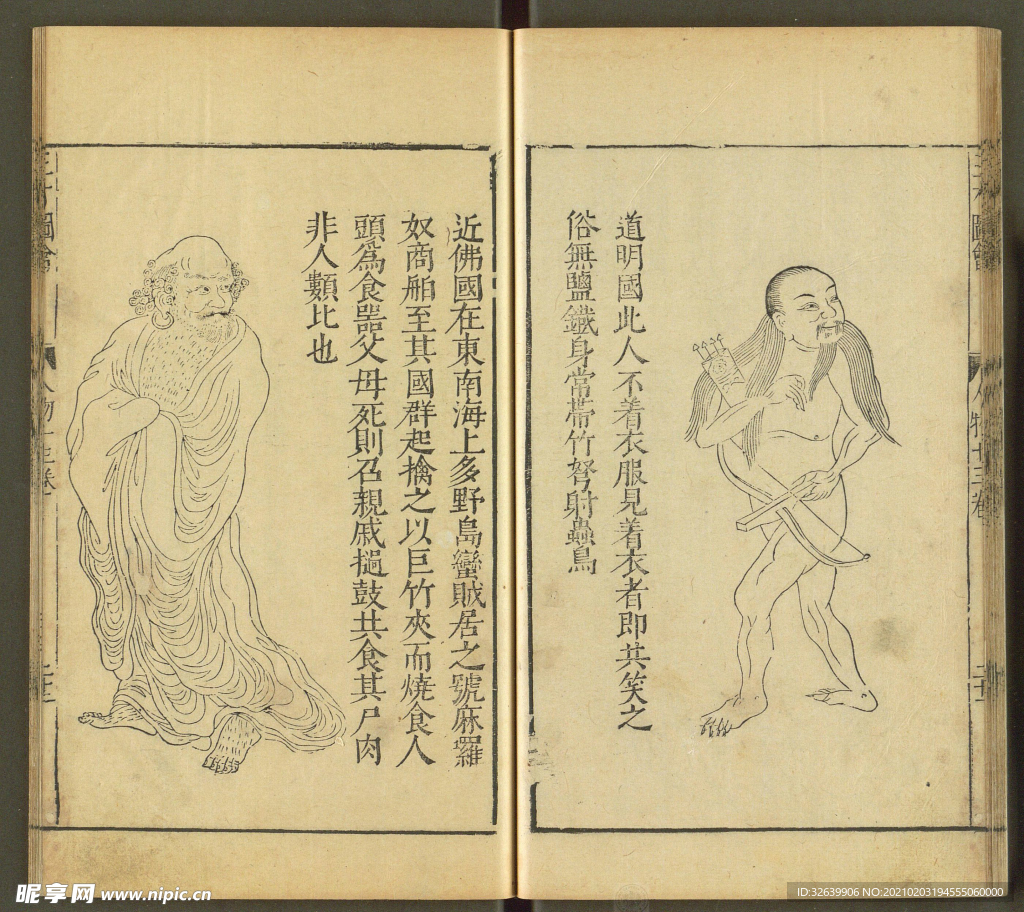 三才圖會
人物十三卷
道明國此人不着衣服見着衣者即共笑之
俗無鹽鐵身常帶竹弩射蟲鳥
近佛國在東南海上多野島蠻賊居之號麻羅
奴商舶至其國群起擒之以巨竹夾而燒食人
頭為食噐父母死則召親戚撾鼓共食其尸肉
非人類比也
三才圖會
人物十三卷
昵享网 www.nipic.cn
ID:32639906 NO:20210203194555060000